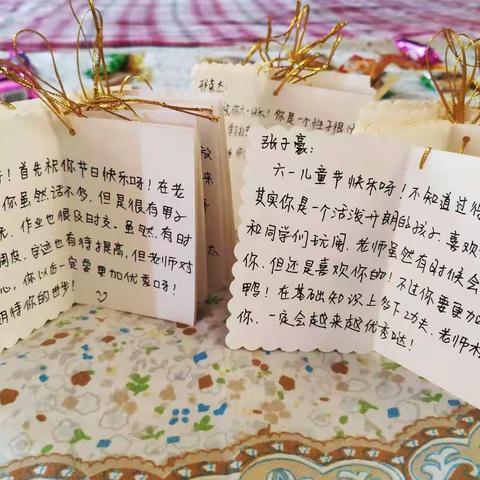 ！首先祝你节日快乐呀！在老
你虽然话不多，但是很有男子
作业也很及时交。虽然，有时
调皮，字迹也有待提高，但老师对
心，你以后一定要更加优秀呀！
期待你的进步！
你六一快乐！你是一个性子很
张子豪：
六一儿童节快乐呀！不知道过
其实你是一个活泼开朗的孩子，喜欢
和同学们玩闹，老师虽然有时候会
你，但还是喜欢你的！不过你要更加
鸭！在基础知识上多下功夫，老师相
你，一定会越来越优秀哒！